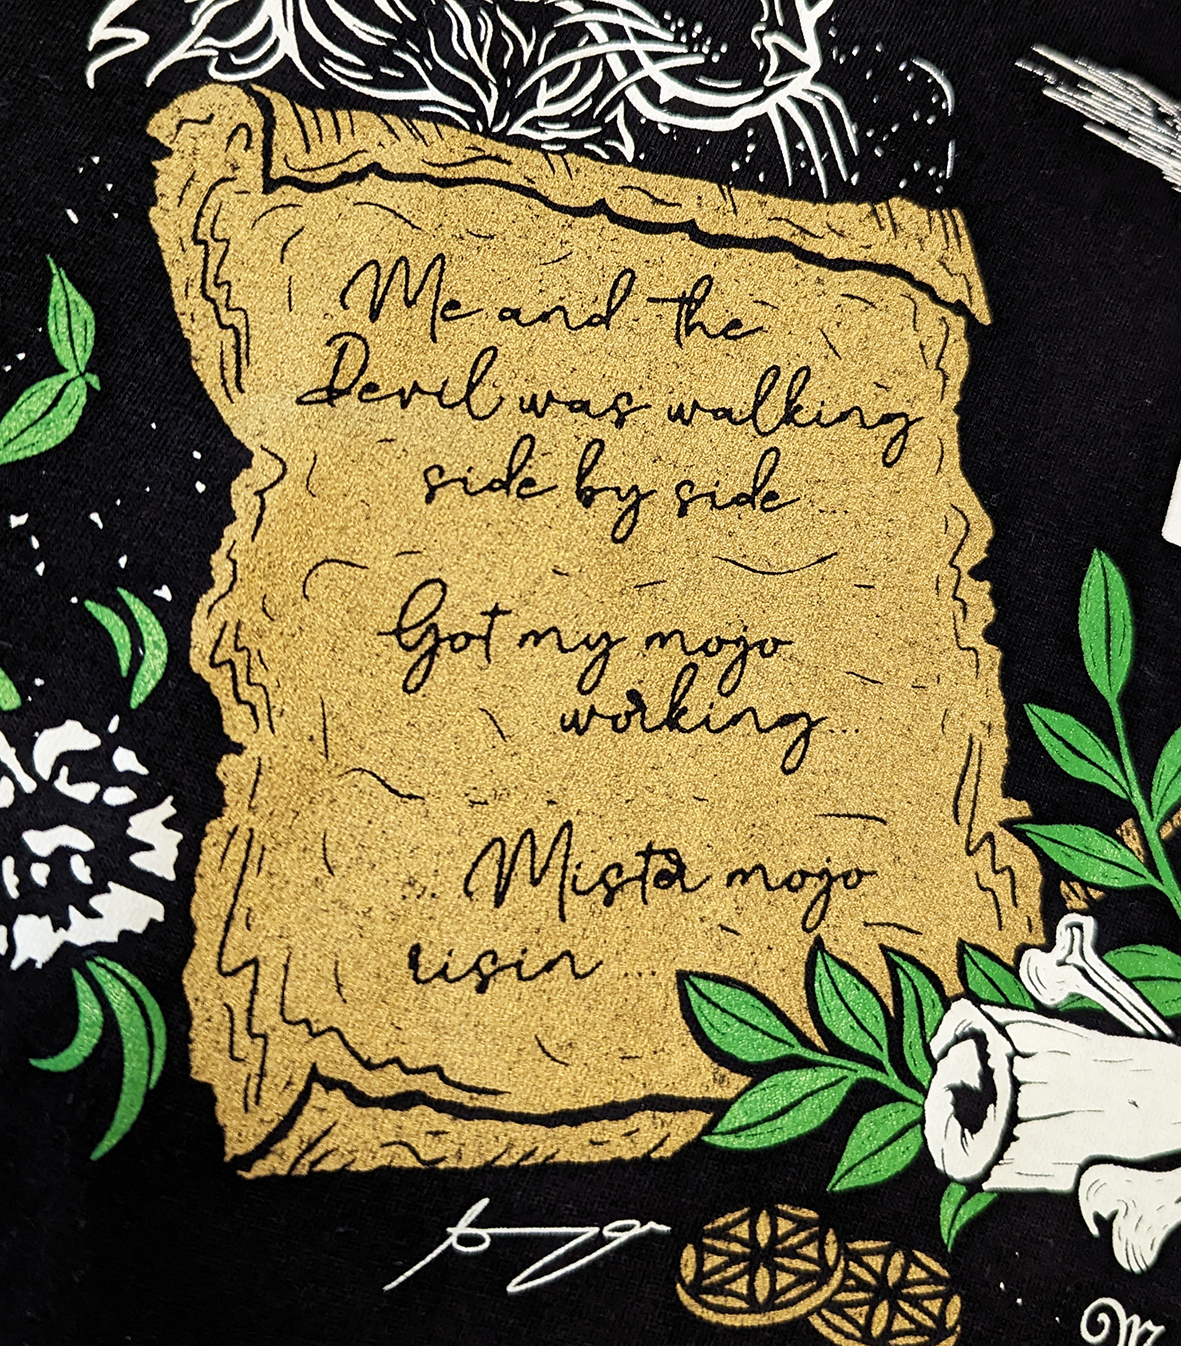 Me and the
Devil was walking
side by side ...
Got my mojo
working...
... Mister mojo
risin ...